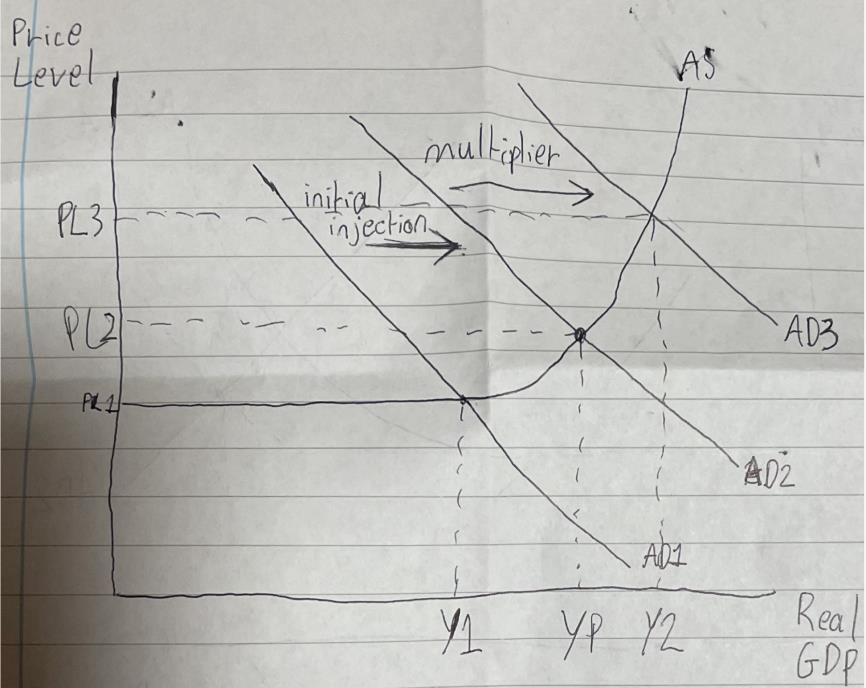 Price
Level
AS
multiplier
initial
injection
PL3
PL2
AD3
PL1
AD2
AD1
Y1
YP
Y2
Real
GDP